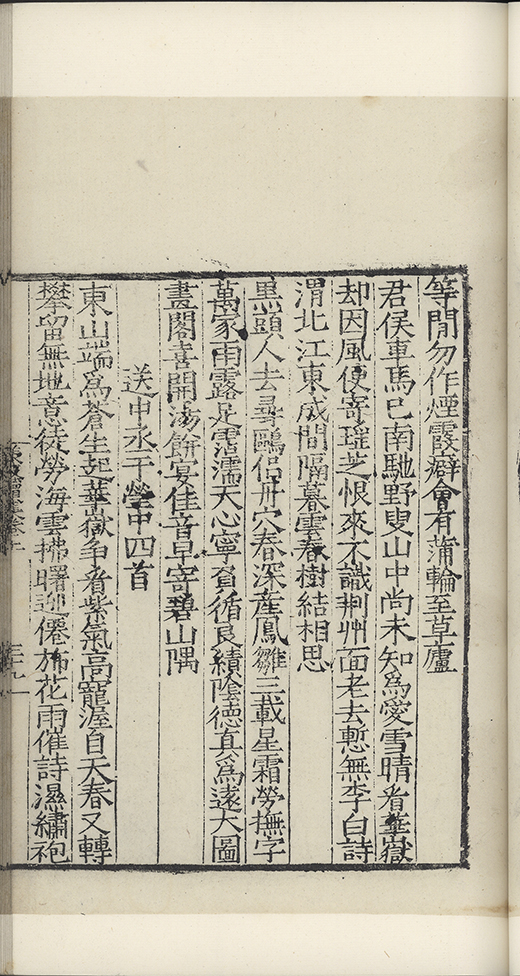 等閒勿作煙霞癖會有蒲輪至草廬
君侯車馬已南馳野叟山中尚未知為愛雪晴看華嶽
却因風便寄瑤芝恨來不識荆州面老去慙無李白詩
渭北江東成間隔暮雲春樹結相思
黒頭人去尋鷗侣丹穴春深産鳳雛三載星霜勞撫字
萬家雨露足霑濡天心寧負循良績隂德真為遠大圖
晝閣喜開湯餅宴佳音早寄碧山隅
送中丞于瑩中四首
東山端為蒼生起華嶽爭看紫氣高寵渥自天春又轉
攀留無地意徒勞海雲拂曙迎僊斾花雨催詩濕繡袍